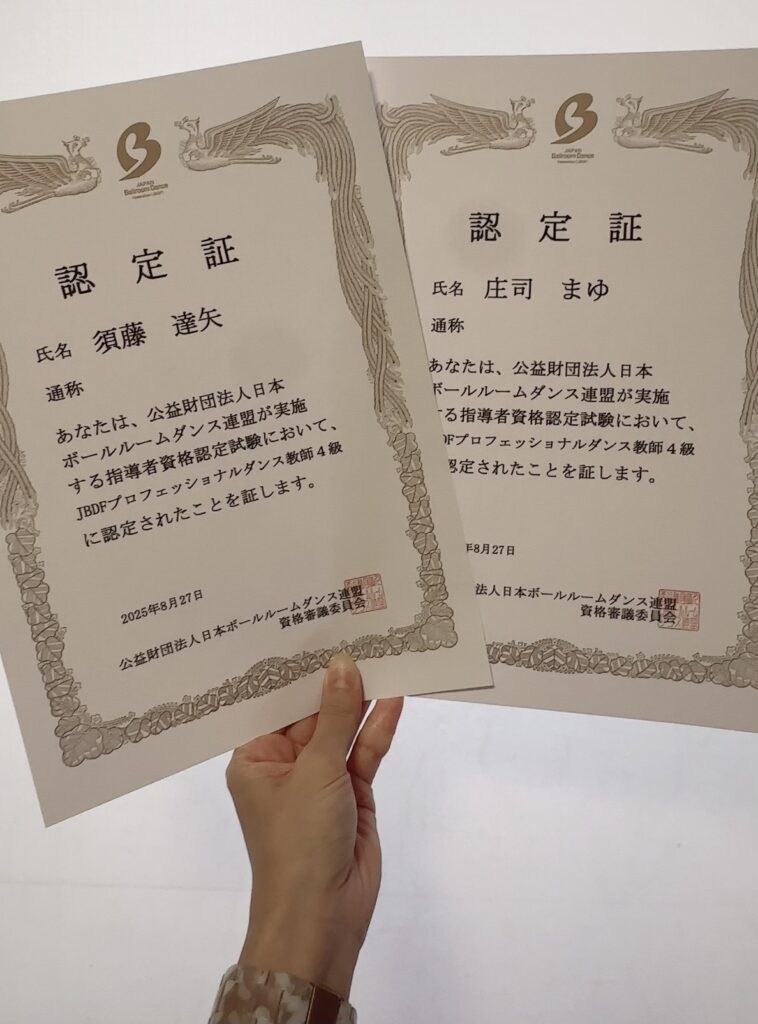 B
JAPAN
Ballroom Dance
Federation (JBDF)
認定証
氏名 須藤 達矢
通称
あなたは、公益財団法人日本
ボールルームダンス連盟が実施
する指導者資格認定試験において、
JBDFプロフェッショナルダンス教師4級
に認定されたことを証します。
2025年8月27日
公益財団法人日本ボールルームダンス連盟
資格審議委員会
B
JAPAN
Ballroom Dance
Federation (JBDF)
認定証
氏名 庄司 まゆ
通称
あなたは、公益財団法人日本
ボールルームダンス連盟が実施
する指導者資格認定試験において、
DFプロフェッショナルダンス教師4級
認定されたことを証します。
年8月27日
法人日本ボールルームダンス連盟
資格審議委員会